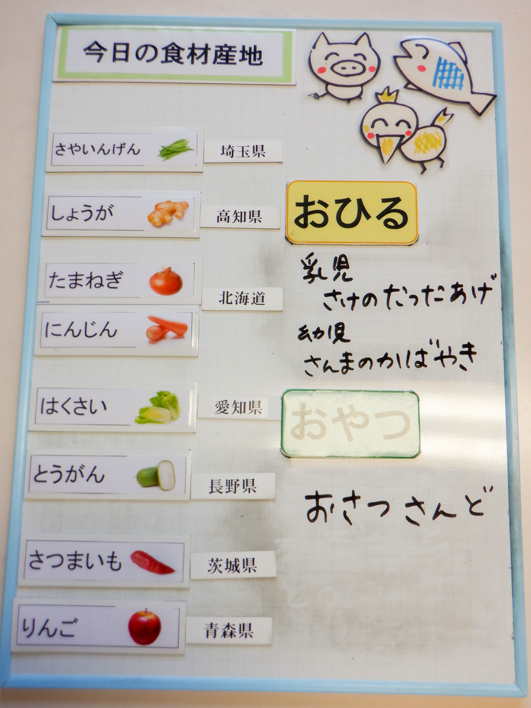 今日の食材産地
さやいんげん 埼玉県
しょうが 高知県
たまねぎ
北海道
にんじん
はくさい 愛知県
とうがん 長野県
さつまいも 茨城県
りんご 青森県
おひる
乳児
さけのたつたあげ
幼児
さんまのかばやき
おやつ
おさつさんど